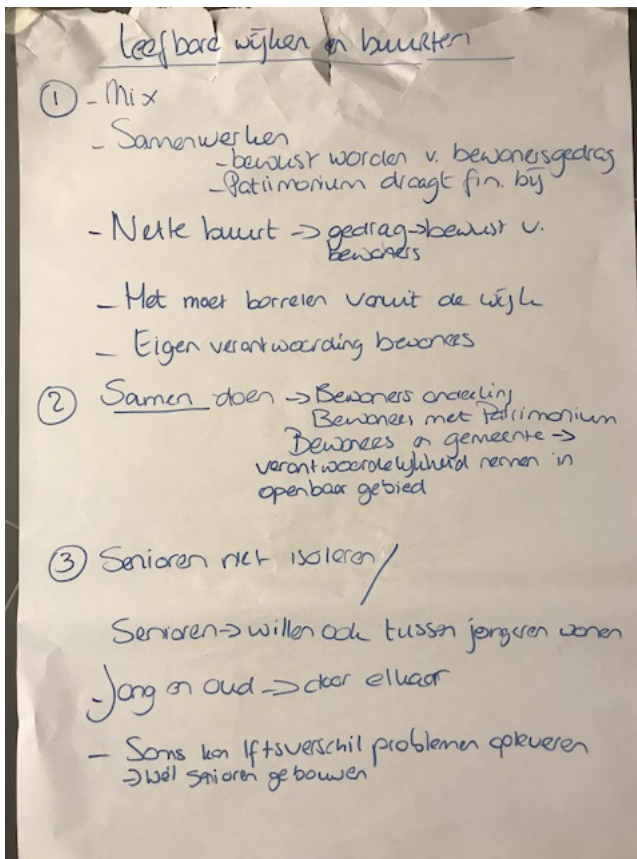 Leefbare wijken en buurten
① - Mix
- Samenwerken
- bewust worden v. bewonersgedrag
- Patrimonium draagt fin. bij
- Nette buurt -> gedrag -> bewust v.
bewoners
- Het moet borrelen vanuit de wijk
- Eigen verantwoording bewoners
② Samen doen -> Bewoners onderling
Bewoners met Patrimonium
Bewoners en gemeente ->
verantwoordelijkheid nemen in
openbaar gebied
③ Senioren niet isoleren/
Senioren -> willen ook tussen jongeren wonen
- Jong en oud -> door elkaar
- Soms kan lftsverschil problemen opleveren
-> wél senioren gebouwen